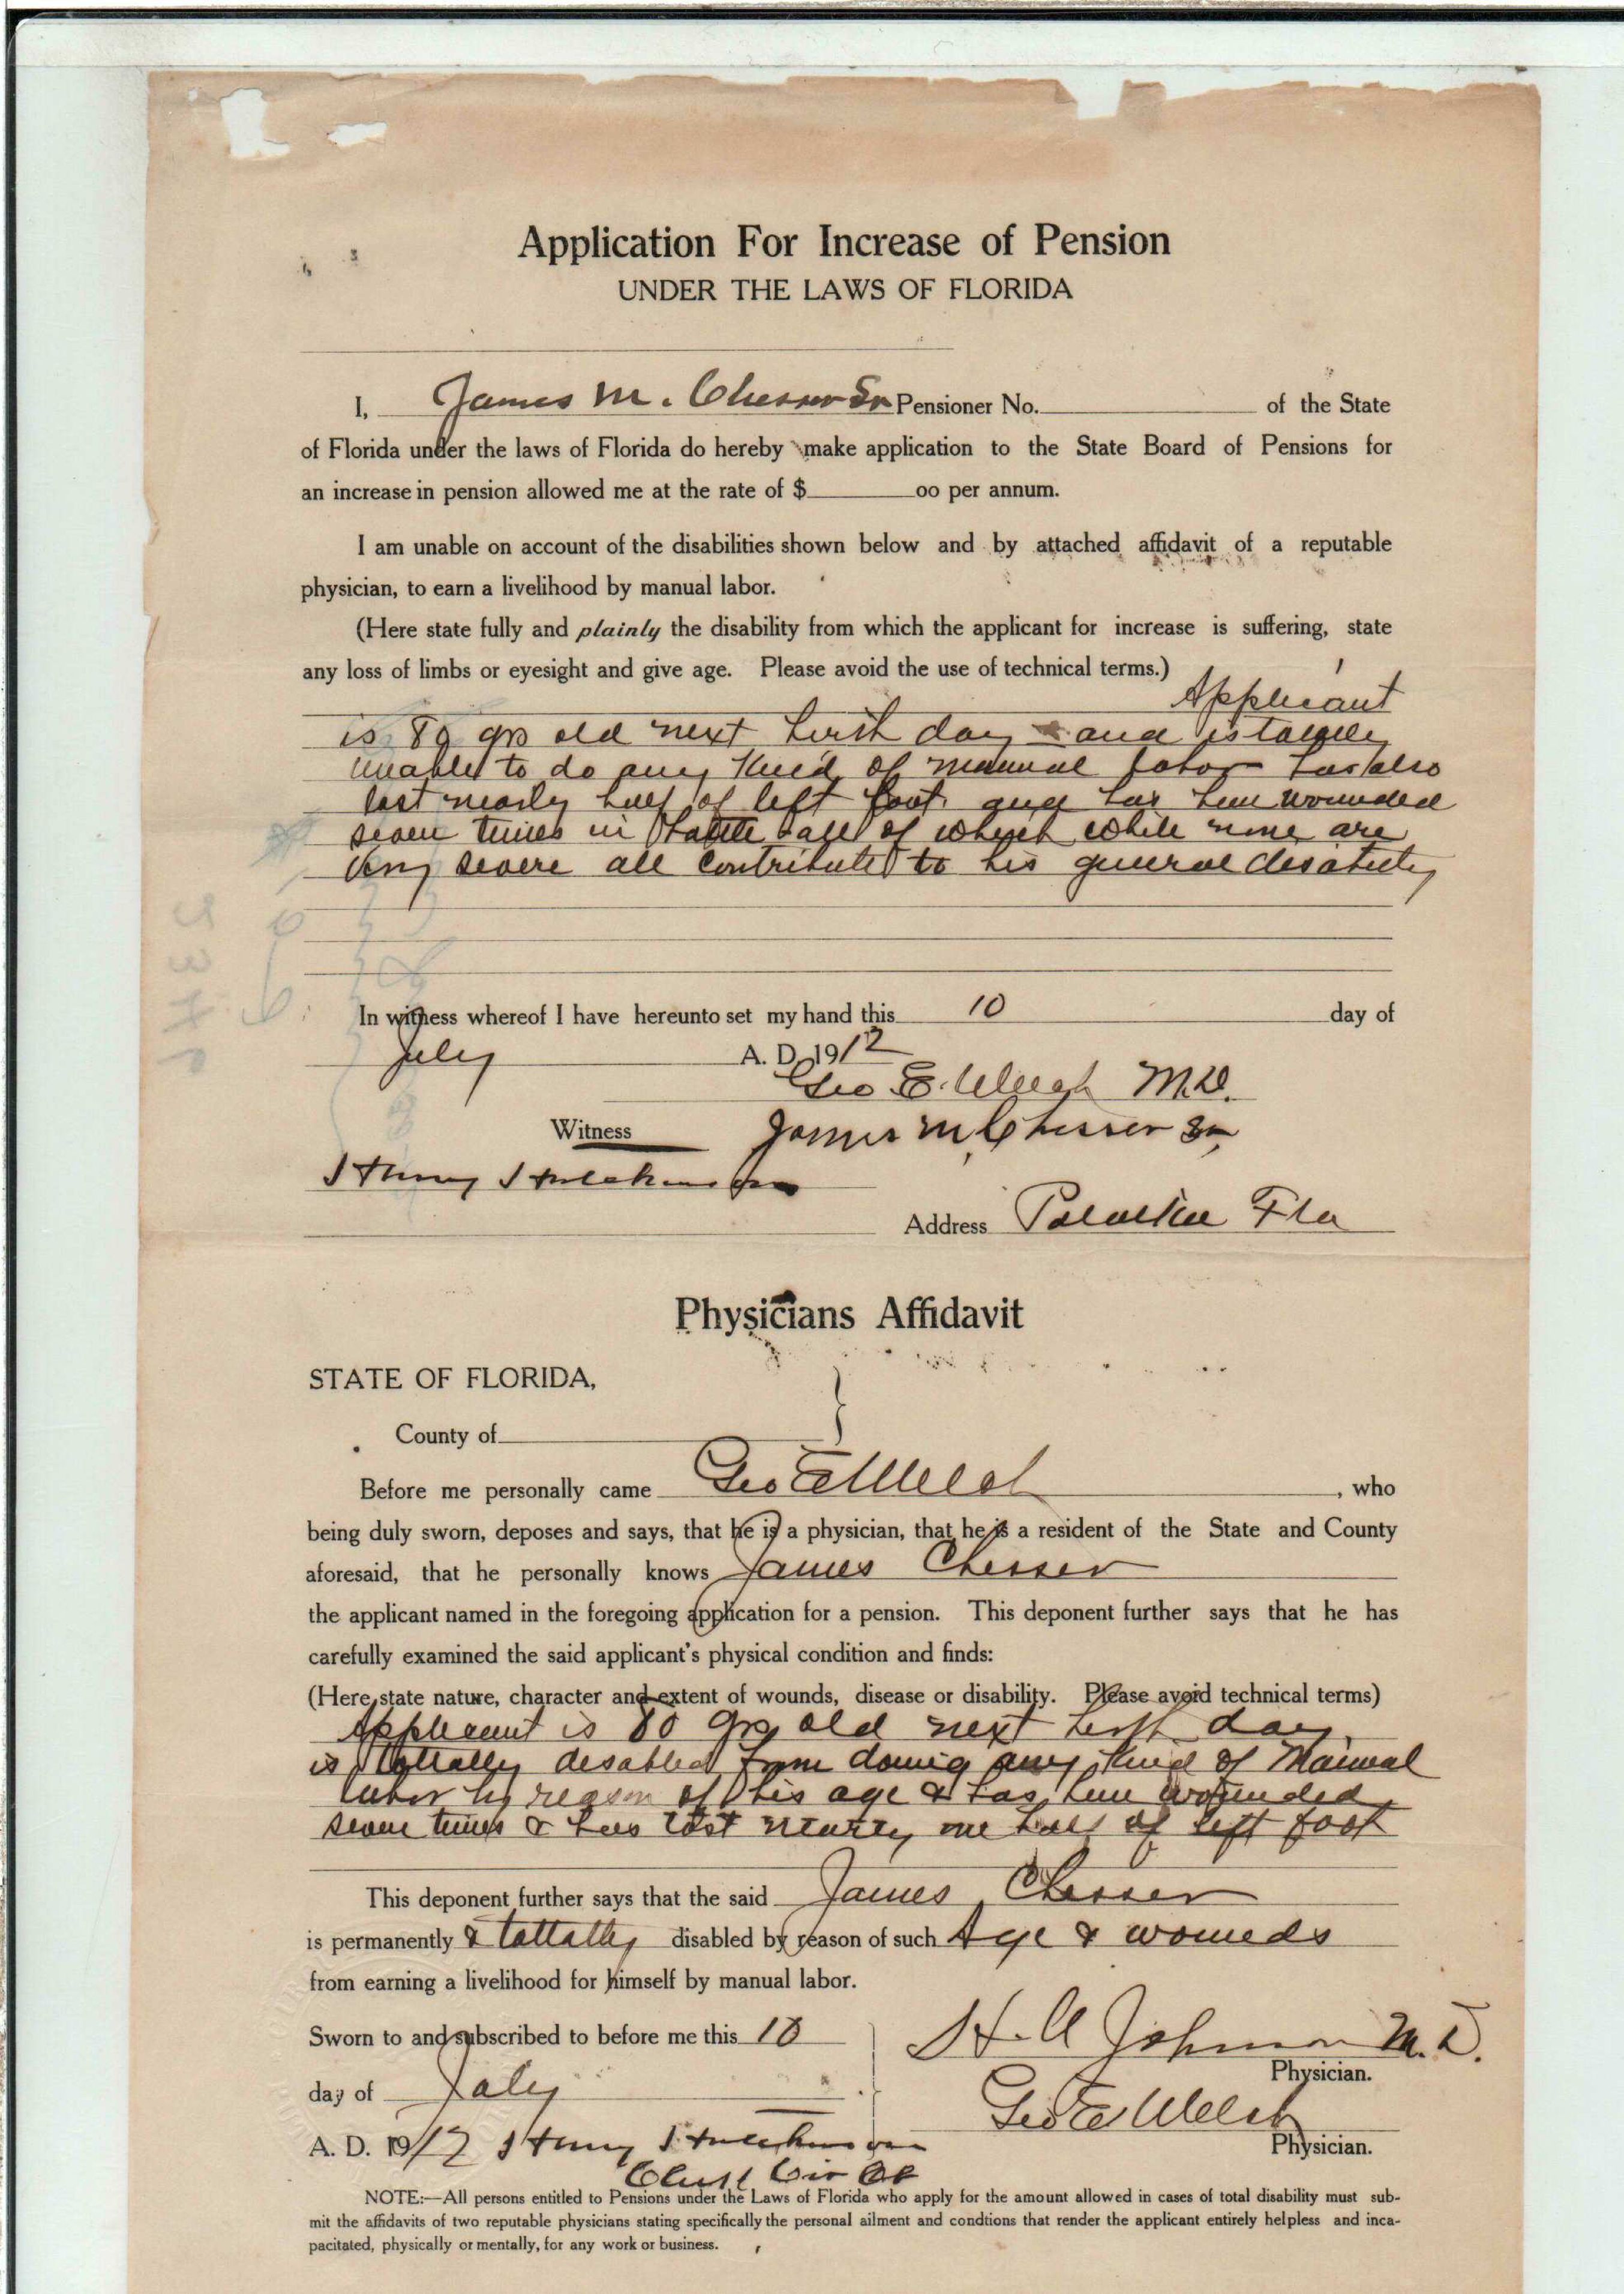 Application For Increase of Pension
UNDER THE LAWS OF FLORIDA
I, James M. Chesser Sr Pensioner No. of the State
of Florida under the laws of Florida do hereby make application to the State Board of Pensions for
an increase in pension allowed me at the rate of $ oo per annum.
I am unable on account of the disabilities shown below and by attached affidavit of a reputable
physician, to earn a livelihood by manual labor.
(Here state fully and plainly the disability from which the applicant for increase is suffering, state
any loss of limbs or eyesight and give age. Please avoid the use of technical terms.)
Applicant
is 80 yrs old next birth day and is totally
unable to do any kind of manual labor has also
lost nearly half of left foot. and has been wounded
seven times in battle all of which while none are
very severe all contribute to his general disability
In witness whereof I have hereunto set my hand this 10 day of
July A. D. 1912
Geo E. Welch M.D.
Witness James M. Chesser Sr,
Henry Hutchinson
Address Palatka Fla
Physicians Affidavit
STATE OF FLORIDA,
County of
Before me personally came Geo E Welch , who
being duly sworn, deposes and says, that he is a physician, that he is a resident of the State and County
aforesaid, that he personally knows James Chesser
the applicant named in the foregoing application for a pension. This deponent further says that he has
carefully examined the said applicant's physical condition and finds:
(Here state nature, character and extent of wounds, disease or disability. Please avoid technical terms)
Applicant is 80 yrs old next birth day
is totally desabled from doing any kind of Manual
labor by reason of his age & has been wounded
seven times & has lost nearly one half of left foot
This deponent further says that the said James Chesser
is permanently & tottally disabled by reason of such Age & wounds
from earning a livelihood for himself by manual labor.
Sworn to and subscribed to before me this 10
H. A Johnson M. D.
Physician.
day of July
Geo E Welch
Physician.
A. D. 1912 Henry Hutchinson
Clerk Cir Ct
NOTE:—All persons entitled to Pensions under the Laws of Florida who apply for the amount allowed in cases of total disability must sub-
mit the affidavits of two reputable physicians stating specifically the personal ailment and condtions that render the applicant entirely helpless and inca-
pacitated, physically or mentally, for any work or business.